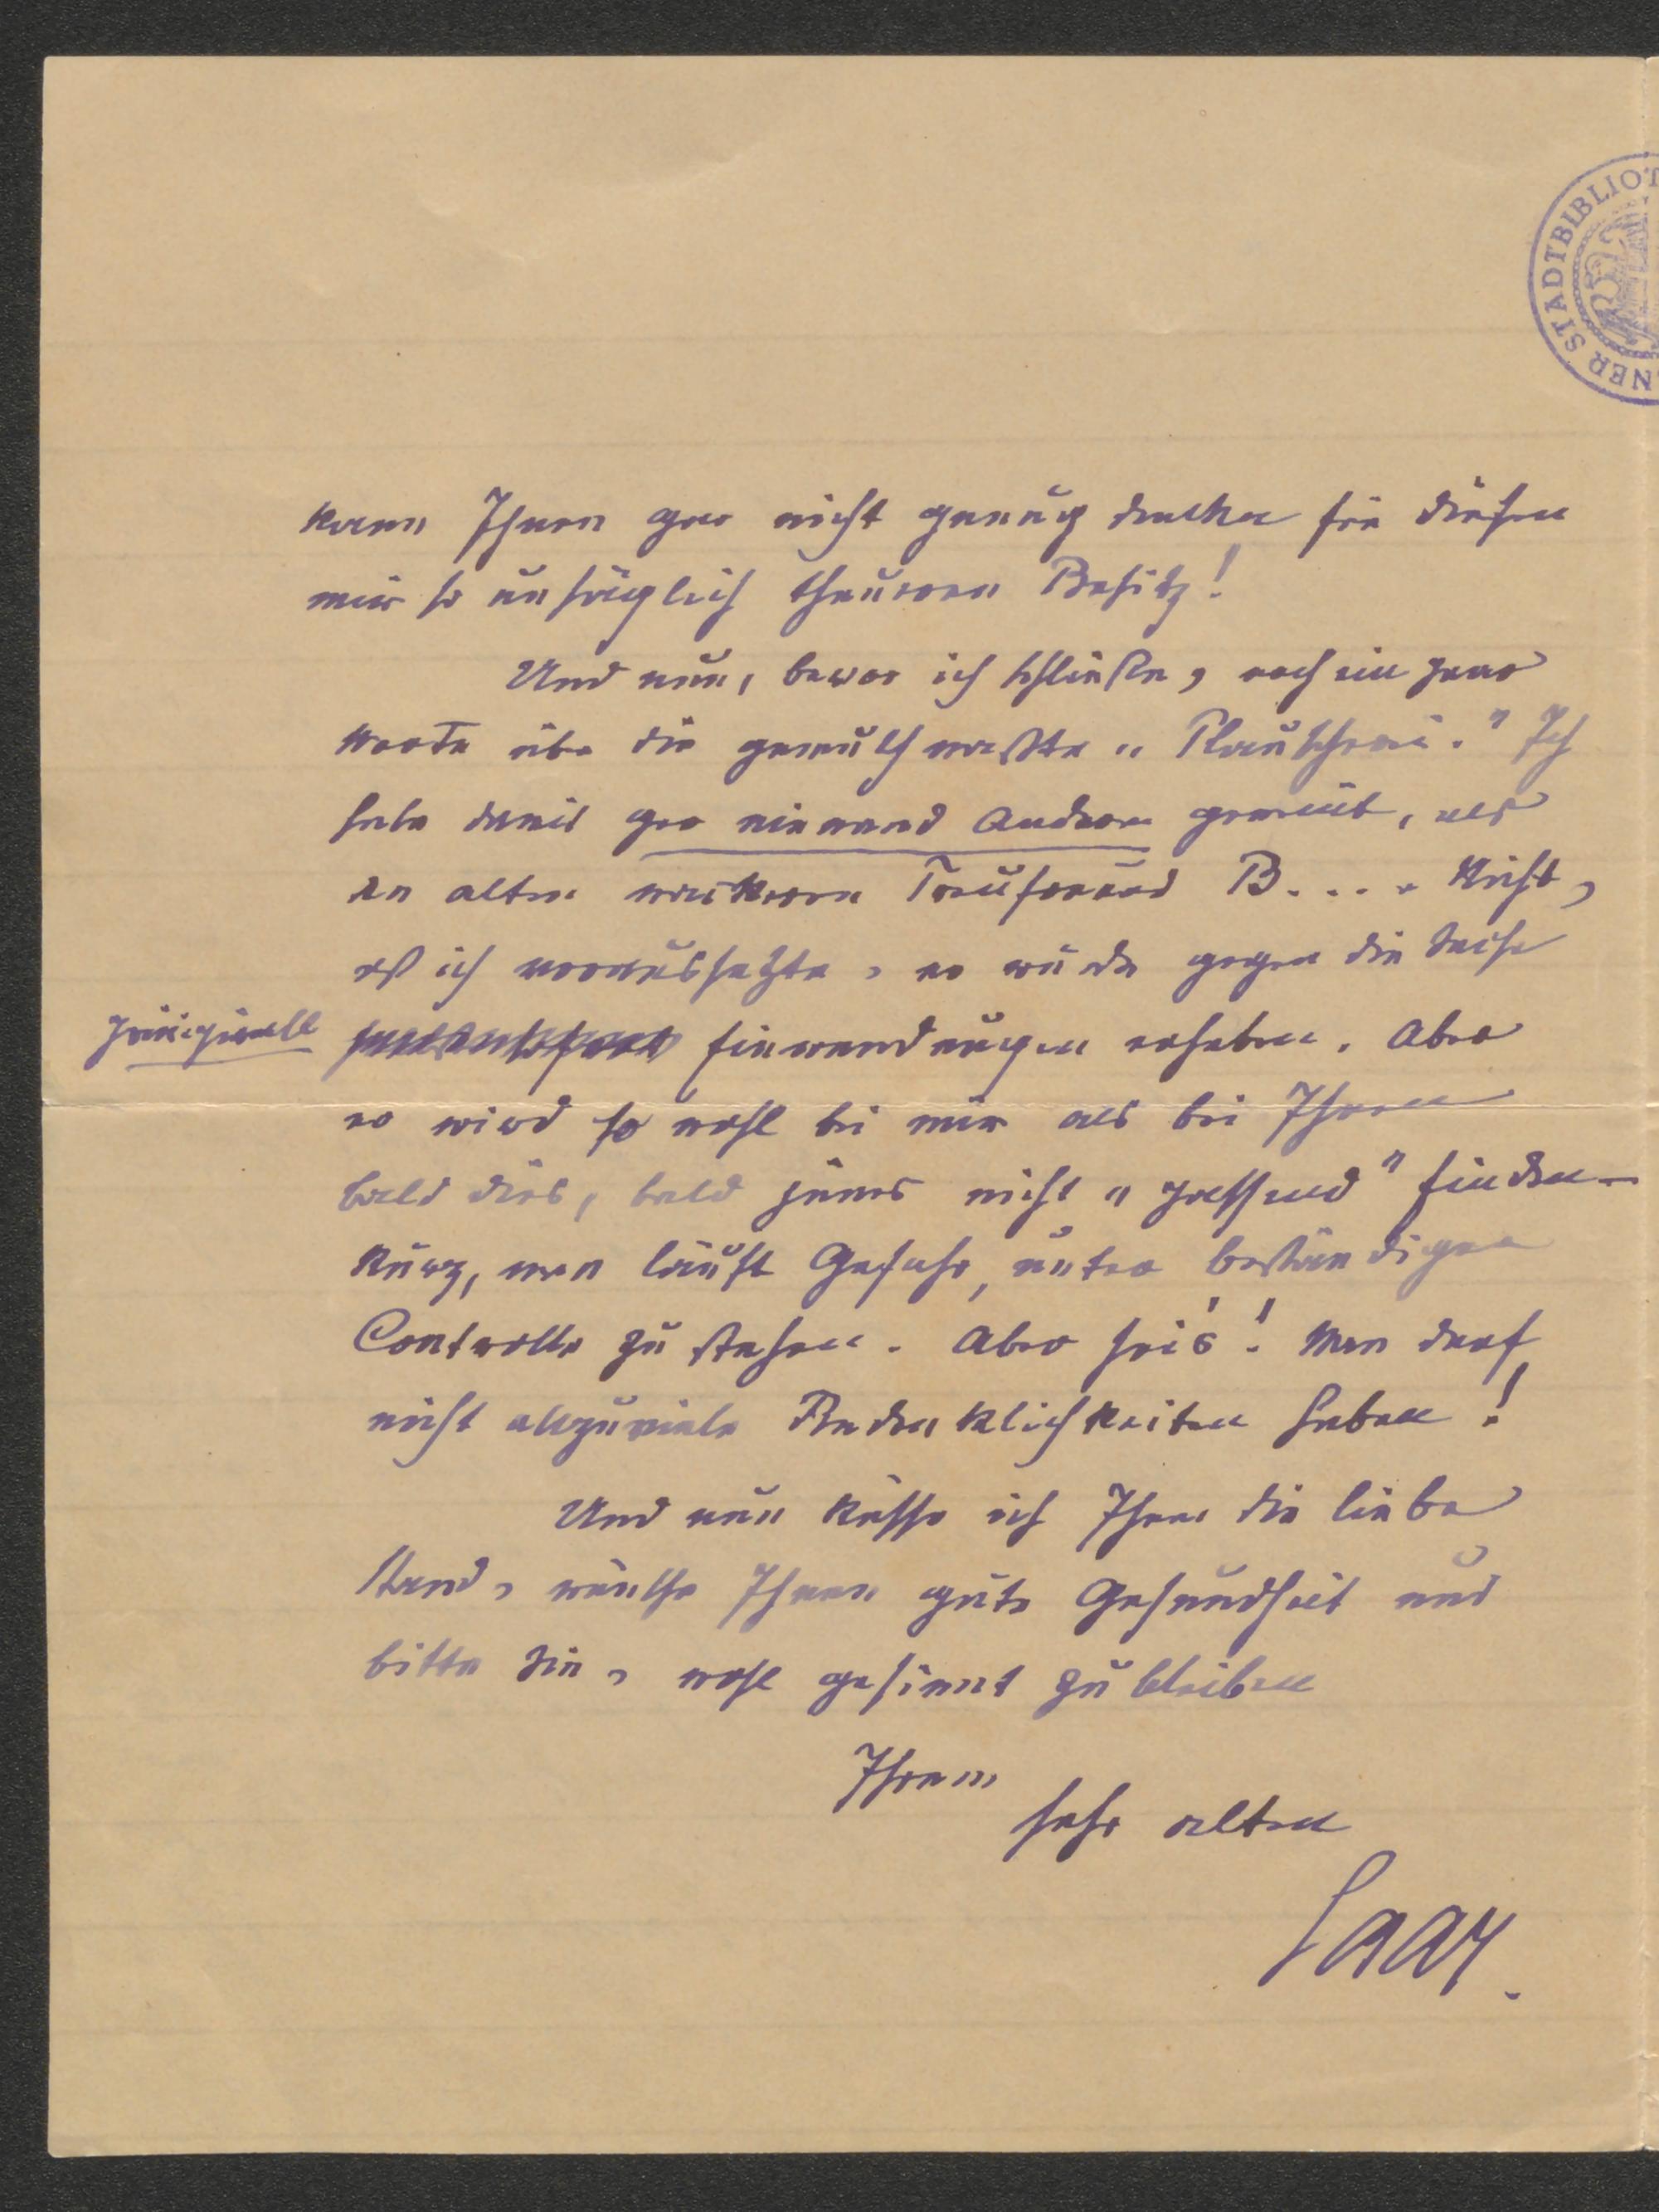 kann Ihnen gar nicht genug danken für diesen
mir so unsäglich theueren Besitz!
Und nun, bevor ich schließe, noch ein paar
Worte über die gemuthmaßte „Plauscherei." Ich
habe damit gar niemand Anderen gemeint, als
den alten wackeren B.... Nicht,
daß ich voraussetzte, er würde gegen die Sache
principielle Einwendungen erheben. Aber
er wird so wohl bei mir als bei Ihnen
bald dies, bald jenes nicht „passend" finden –
kurz, man läuft Gefahr, unter beständiger
Controlle zu stehen. Aber sei's! Man darf
nicht allzuviele Bedenklichkeiten haben!
Und nun küsse ich Ihnen die liebe
Hand, wünsche Ihnen gute Gesundheit und
bitte Sie, wohl gesinnt zu bleiben
Ihrem
sehr alten
Saar.
NER STADTBIBLIOT